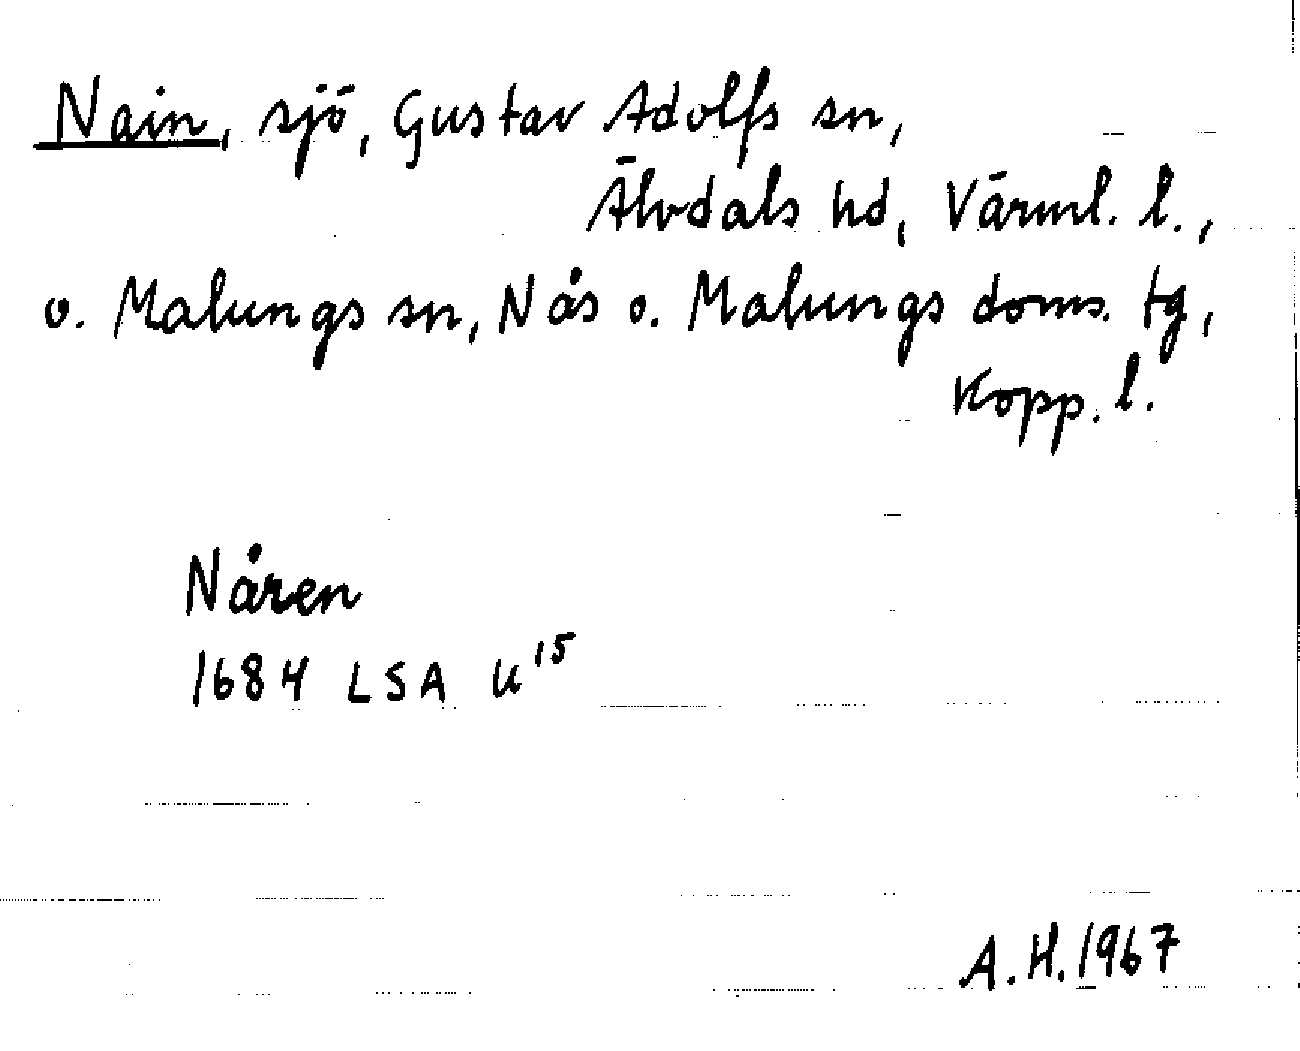 Nain, sjö, Gustav Adolfs sn,
Älvdals hd, Värml. l.,
o. Malungs sn, Nås o. Malungs doms. tg,
Kopp. l.
Nåren
1684 LSA U15
A.H. 1967